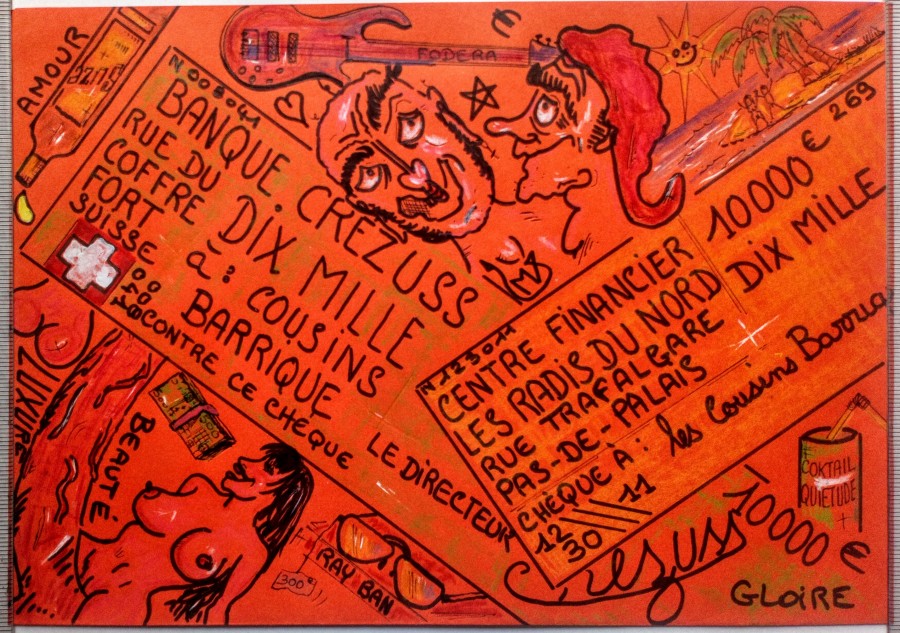 AMOUR
FODERA
N 008041
BANQUE CREZUSS
RUE DU
COFFRE
FORT
SUISSE
DIX MILLE
à: COUSINS
BARRIQUE
CONTRE CE CHÈQUE
LE DIRECTEUR
10000 € 269
N 123011
CENTRE FINANCIER
LES RADIS DU NORD
DIX MILLE
RUE TRAFALGARE
PAS-DE-PALAIS
CHÈQUE À: les Cousins Barriq
12
30
11
Crezuss
10000 €
COKTAIL
QUIETUDE
LUXURE
BEAUTÉ
RAY BAN
300€
GLOIRE